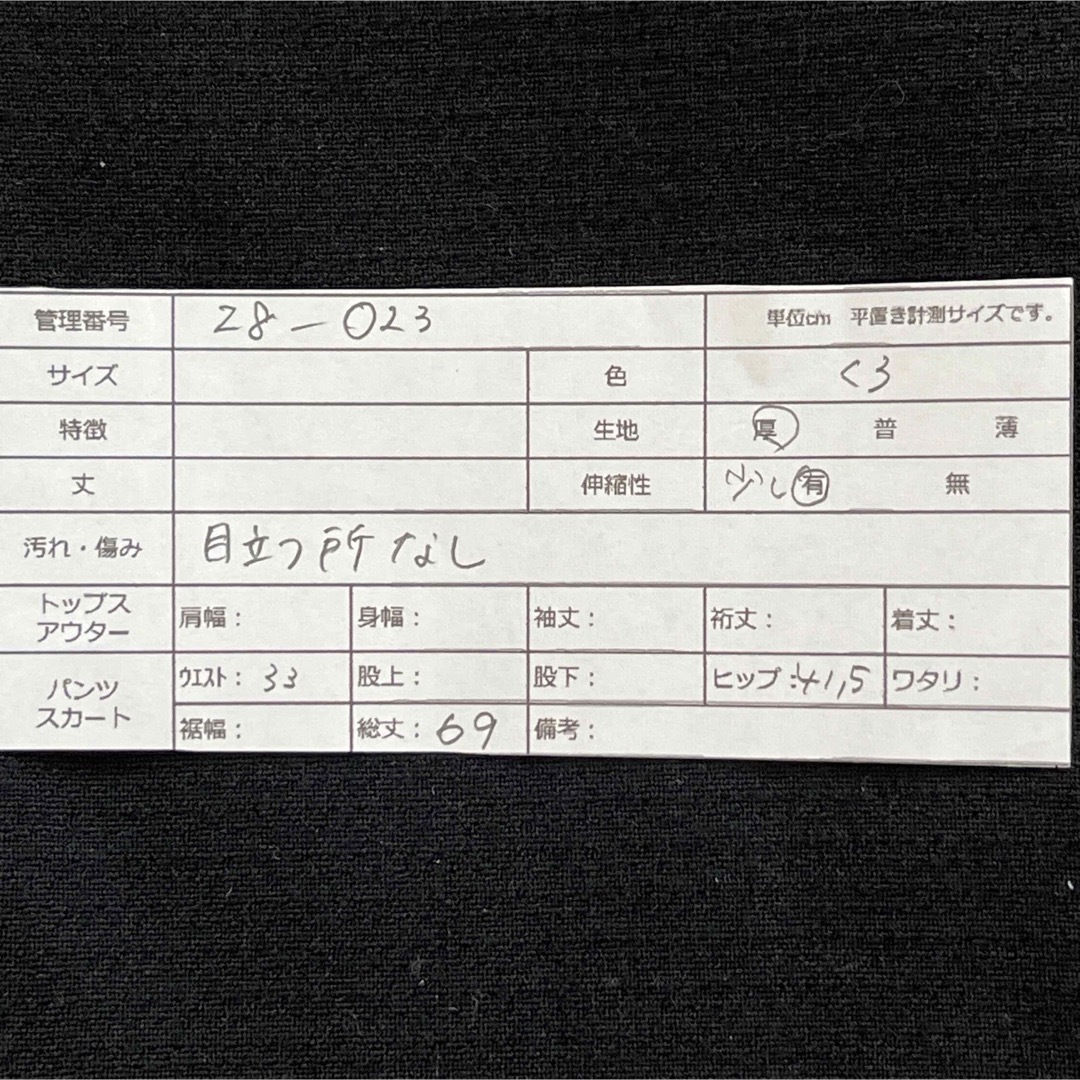 管理番号 28-023 単位cm 平置き計測サイズです。
サイズ 色 くろ
特徴 生地 厚 普 薄
丈 伸縮性 少し有 無
汚れ・傷み 目立つ所なし
トップス
アウター 肩幅： 身幅： 袖丈： 裄丈： 着丈：
パンツ
スカート ｳｴｽﾄ： 33 股上： 股下： ヒップ：41,5 ワタリ：
裾幅： 総丈： 69 備考：